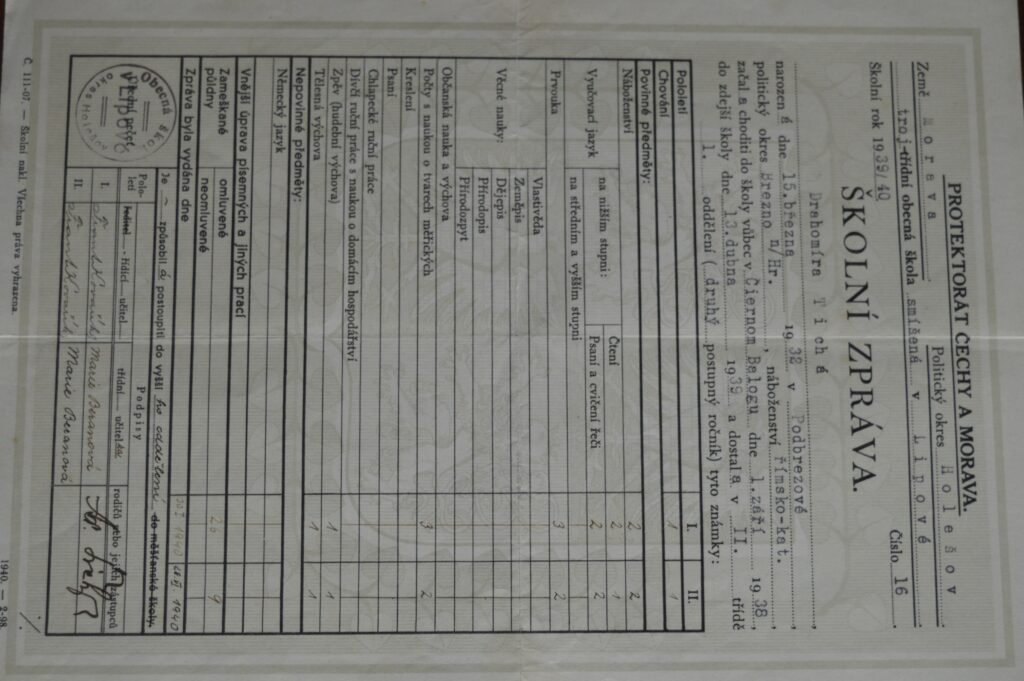 PROTEKTORÁT ČECHY A MORAVA.
Země Morava Politický okres Holešov
troj-třídní obecná škola smíšená v Lipové
Školní rok 1939/40 Číslo 16
ŠKOLNÍ ZPRÁVA.
Drahomíra Tichá
narozená dne 15.března 1932 v Podbrezové
politický okres Brezno n/Hr., náboženství římsko-kat.
začala choditi do školy vůbec v Čiernom Balogu dne 1.září 1938,
do zdejší školy dne 13.dubna 1939 a dostala v II. třídě
1. oddělení (druhý postupný ročník) tyto známky:
Pololetí I. II.
Chování 1 1
Povinné předměty:
Náboženství 2 2
Vyučovací jazyk na nižším stupni: Čtení 2 1
Psaní a cvičení řeči 2 2
na středním a vyšším stupni
Prvouka 3 2
Věcné nauky: Vlastivěda
Zeměpis
Dějepis
Přírodopis
Přírodozpyt
Občanská nauka a výchova
Počty s naukou o tvarech měřických 3 2
Kreslení
Psaní
Chlapecké ruční práce
Dívčí ruční práce s naukou o domácím hospodářství
Zpěv (hudební výchova) 1 1
Tělesná výchova 1 1
Nepovinné předměty:
Německý jazyk
Vnější úprava písemných a jiných prací
Zameškané půldny omluvené 26 9
neomluvené
Zpráva byla vydána dne 1940 1940
Je způsobilá postoupiti do vyšší ho oddělení do měšťanské školy.
Obecná
Lipové
okres Holešov
Pololetí Podpisy
ředitel řídící učitel třídní učitelka rodičů nebo jejich zástupců
I. Marie Beranová
II. Marie Beranová
Č. 111-07. — Školní nakl. Všechna práva vyhrazena. 1940. — 2-98.